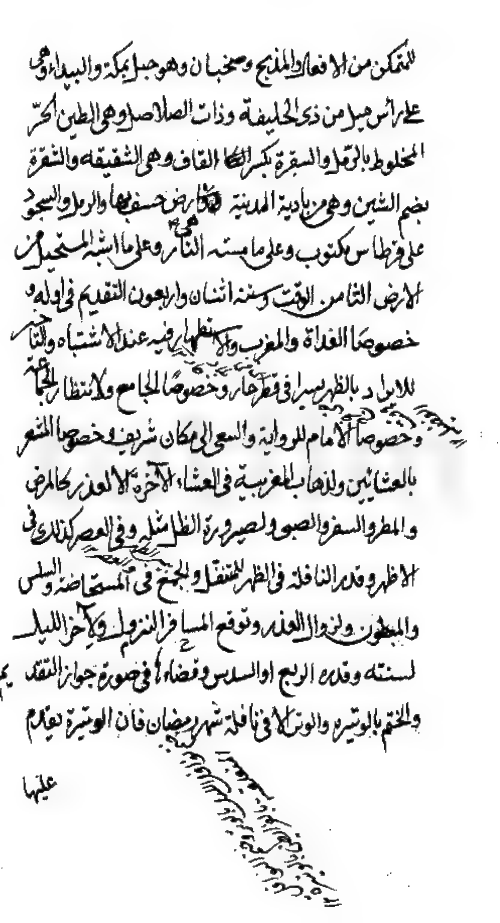 للمتمكن من الافعال والمذبح وضجنان وهو جبل بمكة والبيداء وهى
على رأس ميل من ذى الحليفة وذات الصلاصل وهى الطين الحرّ
المخلوط بالرمل والسقرة بكسر القاف وهى الشقيقه والشقرة
بضم الشين وهى من بادية المدينة وارض خسف بها والرمل والسجود
على قرطاس مكتوب وعلى ما مسته النار وعلى ما اشبه المستحيل من
الارض الثامن الوقت وسننه اثنان واربعون التقديم فى اوله و
خصوصا الغداة والمغرب والاستظهار فيه عند الاشتباه والتاخير
للابراد بالظهر يسيرا فى قطر حار وخصوصًا الجامع ولانتظار الجماعة
وخصوصا الامام للرواية والسعى الى مكان شريف وخصوصا المشعر
بالعشائين ولذهاب المغربية فى العشاء الآخرة الا لعذر كالمرض
والمطر والسفر والصبى ولصيرورة الظل مثله وفى العصر كذلك فى
الاظهر وقدر النافلة فى الظهر للمتنفل والجمع فى المستحاضة والسلس
والمبطون ولزوال العذر وتوقع المسافر النزول ولآخر الليل
لسنته وقدره الربع او السدس وقضاءها فى صورة جواز التقديم
والختم بالوتيره والوتر الا فى نافلة شهر رمضان فان الوتيرة يقدم
عليها